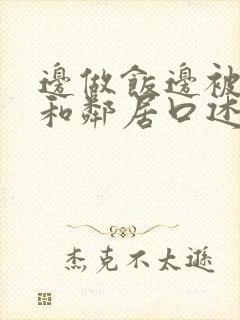 邊做飯邊被
和鄰居口述
杰克不太遜